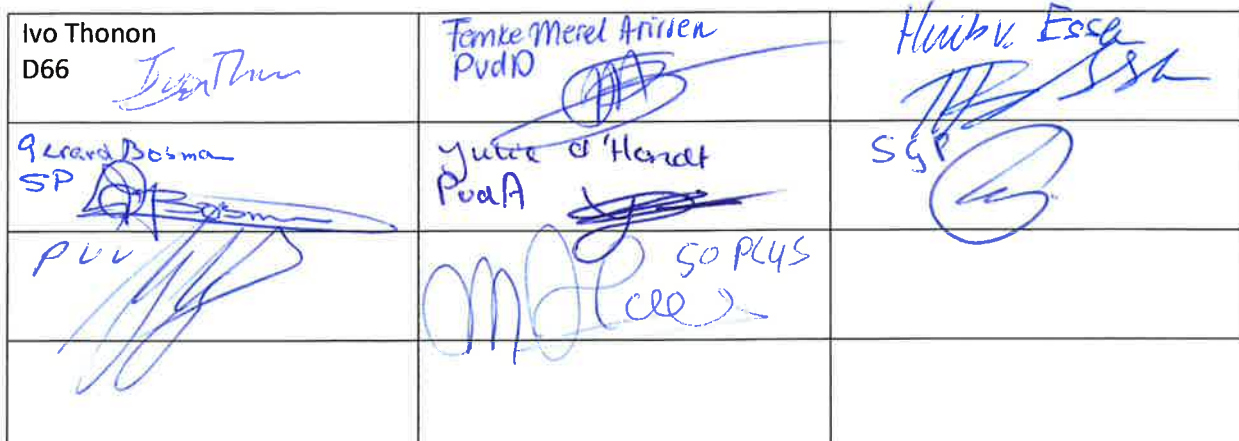 Ivo Thonon
D66
Ivo Thon
Femke Merel Arissen
PvdD
Huib v. Essen
Gerard Bosma
SP
Bosma
Julie d'Hondt
PvdA
SGP
PVV
50 PLUS